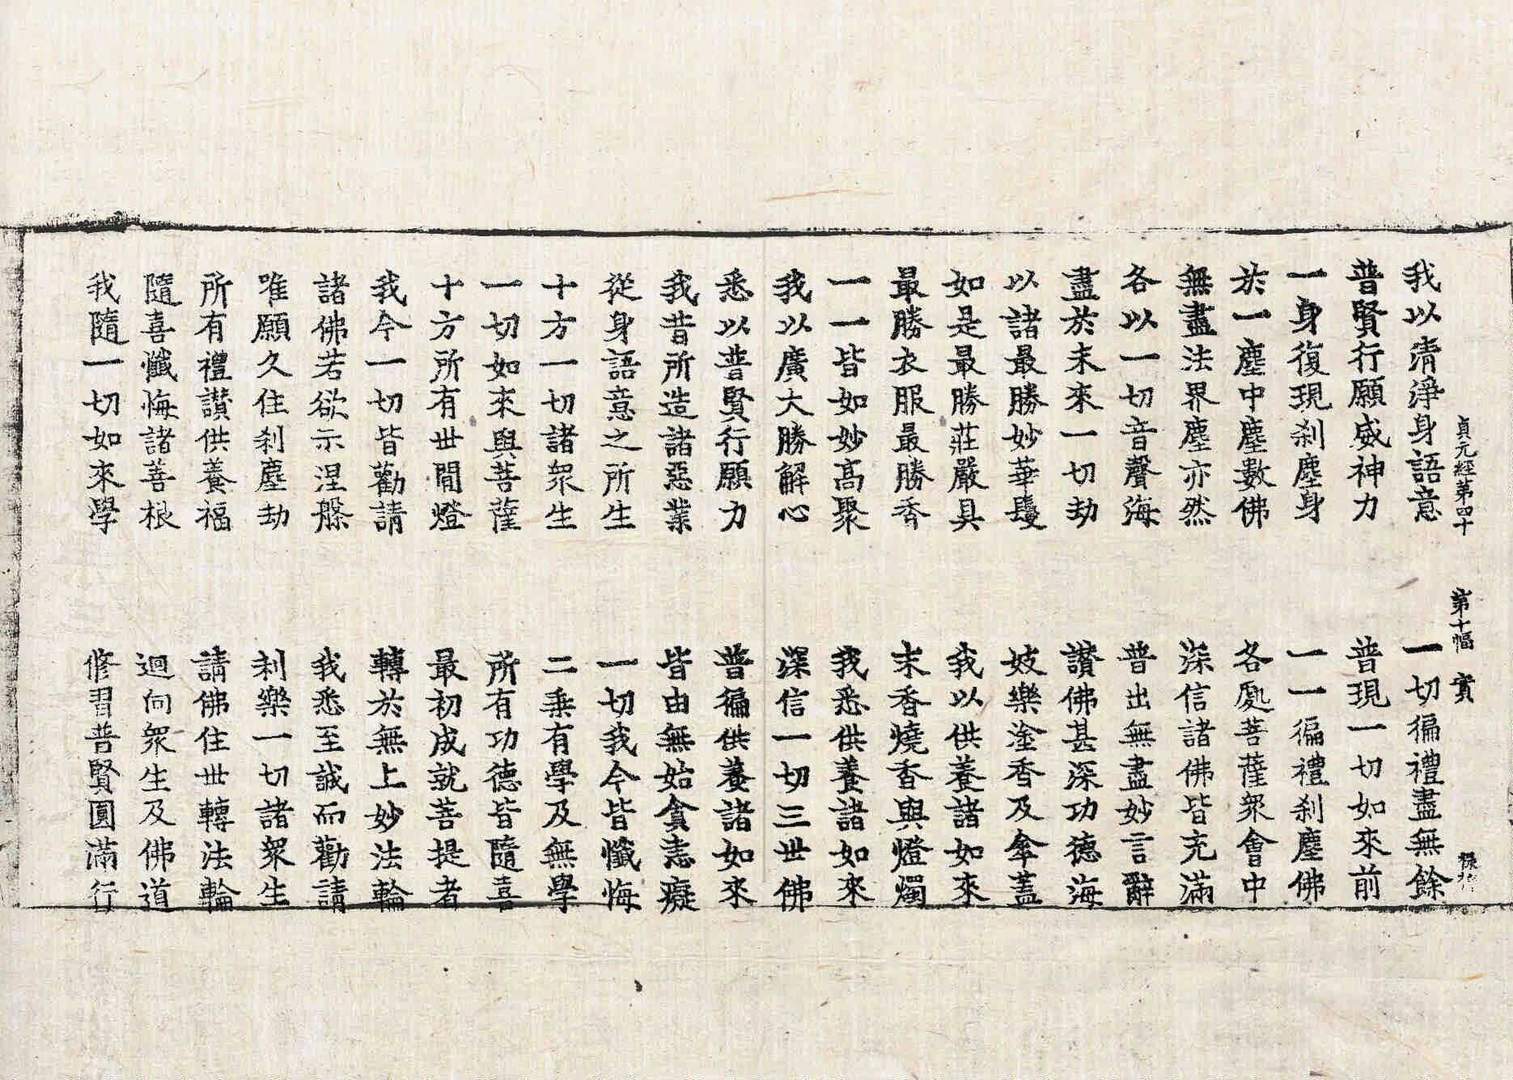 貞元經第四十　第十幅　實
我以清淨身語意　一切徧禮盡無餘
普賢行願威神力　普現一切如來前
一身復現剎塵身　一一徧禮剎塵佛
於一塵中塵數佛　各處菩薩衆會中
無盡法界塵亦然　深信諸佛皆充滿
各以一切音聲海　普出無盡妙言辭
盡於未來一切劫　讚佛甚深功德海
以諸最勝妙華鬘　妓樂塗香及傘蓋
如是最勝莊嚴具　我以供養諸如來
最勝衣服最勝香　末香燒香與燈燭
一一皆如妙高聚　我悉供養諸如來
我以廣大勝解心　深信一切三世佛
悉以普賢行願力　普徧供養諸如來
我昔所造諸惡業　皆由無始貪恚癡
從身語意之所生　一切我今皆懺悔
十方一切諸衆生　二乘有學及無學
一切如來與菩薩　所有功德皆隨喜
十方所有世間燈　最初成就菩提者
我今一切皆勸請　轉於無上妙法輪
諸佛若欲示涅槃　我悉至誠而勸請
唯願久住剎塵劫　利樂一切諸衆生
所有禮讚供養福　請佛住世轉法輪
隨喜懺悔諸善根　迴向衆生及佛道
我隨一切如來學　修習普賢圓滿行